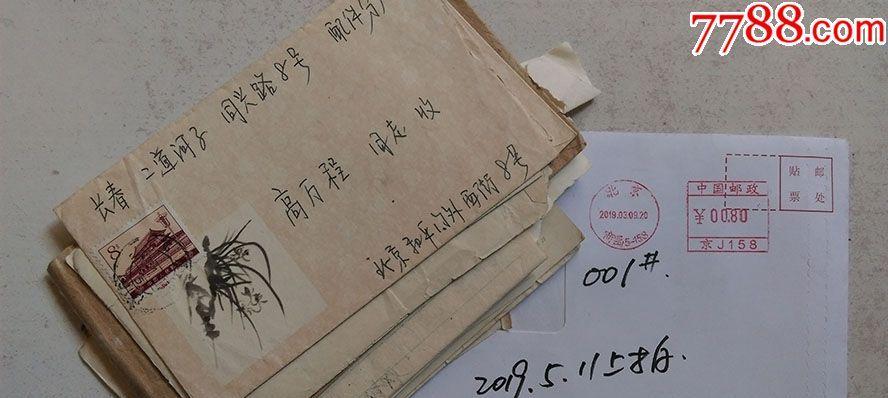 7788.com
长春 二道河子 同兴路8号 配件分
高万程 同志 收
北京和平里 西街8号
8分
北京
2019.03.09.20
中国邮政
¥ 00.80
京 J158
贴邮
票处
001#.
2019.5.11上拍.